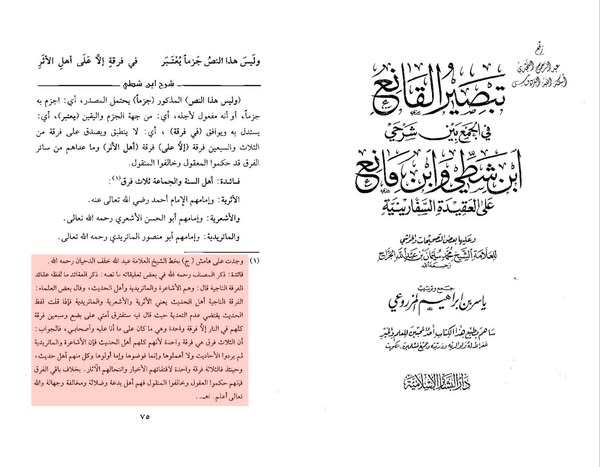 وليس هذا النص جزماً يُعْتَبَر في فرقةٍ إلاَّ عَلَى أهلِ الأثَرِ
شرح ابن شطي
(وليس هذا النص) المذكور (جزماً) يحتمل المصدر، أي: اجزم به
جزماً، أو أنه مفعول لأجله، أي: من جهة الجزم واليقين (يعتبر)، أي:
يستدل به ويوافق (في فرقة)، أي: لا ينطبق ويصدق على فرقة من
الثلاث والسبعين فرقة (إلا على) فرقة (أهل الأثر) وما عداهم من سائر
الفرق قد حكموا المعقول وخالفوا المنقول.
فائدة: أهل السنة والجماعة ثلاث فرق(١):
الأثرية: وإمامهم الإمام أحمد رضي الله تعالى عنه.
والأشعرية: وإمامهم أبو الحسن الأشعري رحمه الله تعالى.
والماتريدية: وإمامهم أبو منصور الماتريدي رحمه الله تعالى.
(١) وجدت على هامش (ج) بخط الشيخ العلامة عبد الله خلف الدحيان رحمه الله.
فائدة: ذكر المصنف رحمه الله في بعض تعليقاته ما نصه: ذكر العلماء ما لفظه عقائد
الفرقة الناجية قال: وهم الأشاعرة والماتريدية وأهل الحديث، وقال بعض العلماء:
الفرقة الناجية أهل الحديث يعني الأثرية والأشعرية والماتريدية فإذا قلت لفظ
الحديث يقتضي عدم التعدية حيث قال فيه ستفترق أمتي على بضع وسبعين فرقة
كلهم في النار إلاَّ فرقة واحدة وهي ما كان على ما أنا عليه وأصحابي، فالجواب:
أن الثلاث فرق هي فرقة واحدة لأنهم كلهم أهل الحديث فإن الأشاعرة والماتريدية
لم يردوا الأحاديث ولا أهملوها وإنما فوضوها وإما أولوها وكل منهم أهل حديث،
وحينئذ فالثلاثة فرقة واحدة لاقتفائهم الأخبار وانتحالهم الآثار. بخلاف باقي الفرق
فإنهم حكموا العقول وخالفوا المنقول فهم أهل بدعة وضلالة ومخالفة وجهالة والله
تعالى أعلم. اهـ.
٧٥
رفع
عبد الرحمن النجدي
أسكنه الله الفردوس
تبصير القانع
في الجمع بين شرحي
ابن شطي وابن مانع
على العقيدة السفارينية
وعليها بعض التصحيحات والحواشي
للعلامة الشيخ محمد بن سليمان بن عبد الله الجراح
رحمه الله
جمع وترتيب
ياسر بن إبراهيم المزروعي
ساهم بطبع هذا الكتاب أحد المحبين للعلم والخير
غفر الله له ولوالديه وذريته وجميع المسلمين. الكويت
دار البشائر الإسلامية